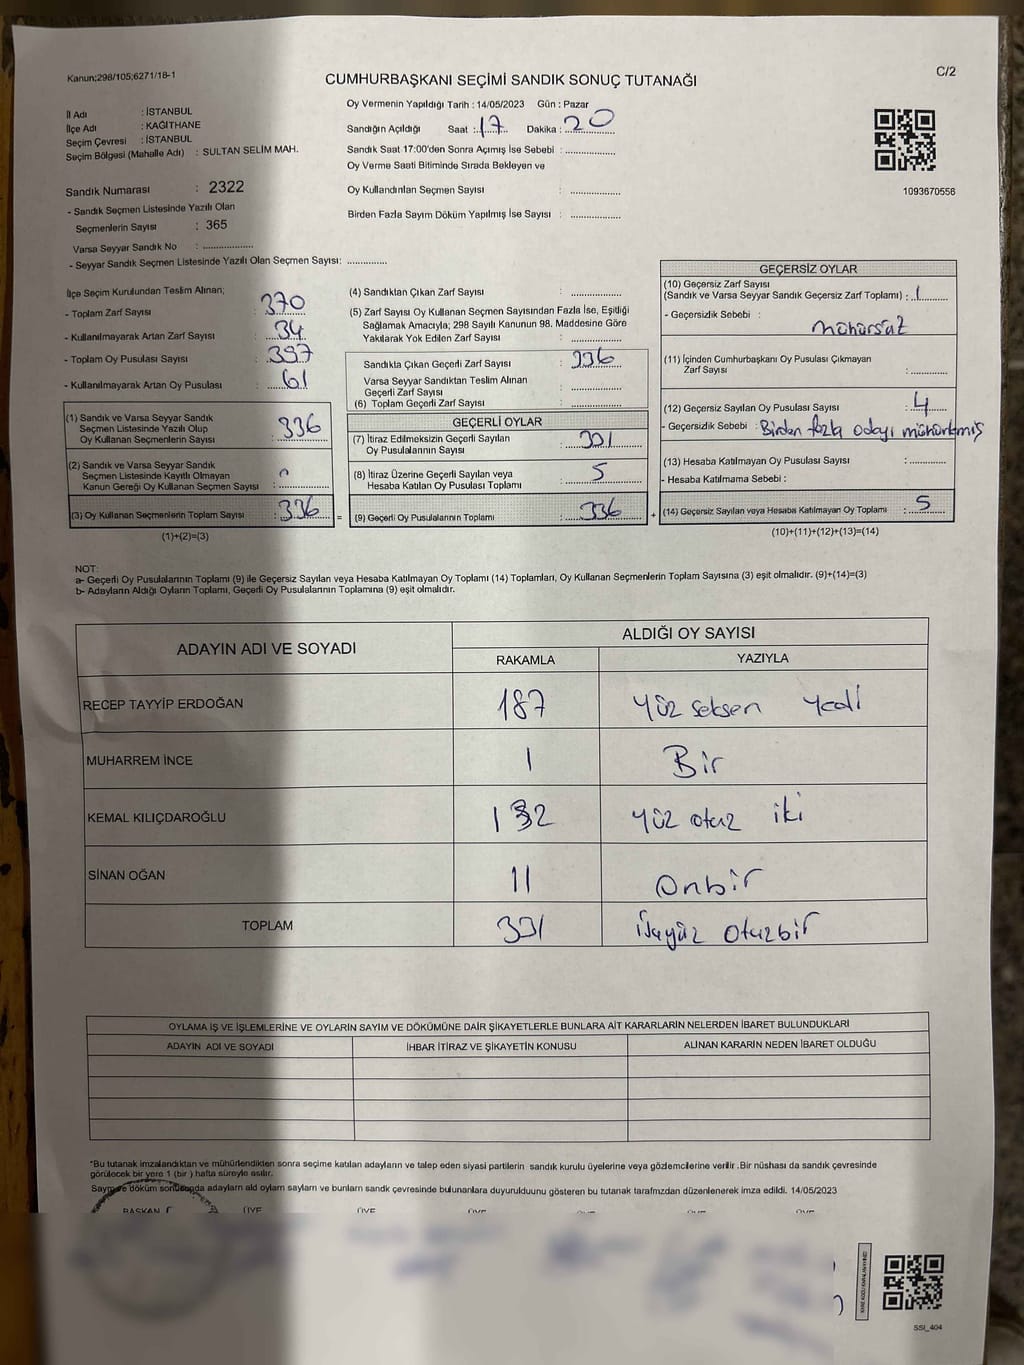 Kanun;298/105;6271/18-1
C/2
CUMHURBAŞKANI SEÇİMİ SANDIK SONUÇ TUTANAĞI
İl Adı : İSTANBUL
İlçe Adı : KAĞITHANE
Seçim Çevresi : İSTANBUL
Seçim Bölgesi (Mahalle Adı) : SULTAN SELİM MAH.
Oy Vermenin Yapıldığı Tarih : 14/05/2023 Gün : Pazar
Sandığın Açıldığı Saat : 17 Dakika : 20
Sandık Saat 17:00'den Sonra Açımış İse Sebebi : ................
Oy Verme Saati Bitiminde Sırada Bekleyen ve
Oy Kullandırılan Seçmen Sayısı : ................
Birden Fazla Sayım Döküm Yapılmış İse Sayısı : ................
1093670556
Sandık Numarası : 2322
- Sandık Seçmen Listesinde Yazılı Olan
Seçmenlerin Sayısı : 365
Varsa Seyyar Sandık No : ................
- Seyyar Sandık Seçmen Listesinde Yazılı Olan Seçmen Sayısı: .............
İlçe Seçim Kurulundan Teslim Alınan;
- Toplam Zarf Sayısı : 370
- Kullanılmayarak Artan Zarf Sayısı : 34
- Toplam Oy Pusulası Sayısı : 397
- Kullanılmayarak Artan Oy Pusulası : 61
(1) Sandık ve Varsa Seyyar Sandık
Seçmen Listesinde Yazılı Olup
Oy Kullanan Seçmenlerin Sayısı : 336
(2) Sandık ve Varsa Seyyar Sandık
Seçmen Listesinde Kayıtlı Olmayan
Kanun Gereği Oy Kullanan Seçmen Sayısı : 0
(3) Oy Kullanan Seçmenlerin Toplam Sayısı : 336
(1)+(2)=(3)
=
(4) Sandıktan Çıkan Zarf Sayısı : ................
(5) Zarf Sayısı Oy Kullanan Seçmen Sayısından Fazla İse, Eşitliği
Sağlamak Amacıyla; 298 Sayılı Kanunun 98. Maddesine Göre
Yakılarak Yok Edilen Zarf Sayısı : ................
Sandıkta Çıkan Geçerli Zarf Sayısı : 336
Varsa Seyyar Sandıktan Teslim Alınan
Geçerli Zarf Sayısı : ................
(6) Toplam Geçerli Zarf Sayısı : ................
GEÇERLİ OYLAR
(7) İtiraz Edilmeksizin Geçerli Sayılan
Oy Pusulalarının Sayısı : 331
(8) İtiraz Üzerine Geçerli Sayılan veya
Hesaba Katılan Oy Pusulası Toplamı : 5
(9) Geçerli Oy Pusulalarının Toplamı : 336
+
GEÇERSİZ OYLAR
(10) Geçersiz Zarf Sayısı
(Sandık ve Varsa Seyyar Sandık Geçersiz Zarf Toplamı) : 1
- Geçersizlik Sebebi :
mühürsüz
(11) İçinden Cumhurbaşkanı Oy Pusulası Çıkmayan
Zarf Sayısı : .............
(12) Geçersiz Sayılan Oy Pusulası Sayısı : 4
- Geçersizlik Sebebi : Birden fazla adayı mühürlemiş
(13) Hesaba Katılmayan Oy Pusulası Sayısı : .............
- Hesaba Katılmama Sebebi :
(14) Geçersiz Sayılan veya Hesaba Katılmayan Oy Toplamı : 5
(10)+(11)+(12)+(13)=(14)
NOT:
a- Geçerli Oy Pusulalarının Toplamı (9) ile Geçersiz Sayılan veya Hesaba Katılmayan Oy Toplamı (14) Toplamları, Oy Kullanan Seçmenlerin Toplam Sayısına (3) eşit olmalıdır. (9)+(14)=(3)
b- Adayların Aldığı Oyların Toplamı, Geçerli Oy Pusulalarının Toplamına (9) eşit olmalıdır.
ADAYIN ADI VE SOYADI
ALDIĞI OY SAYISI
RAKAMLA YAZIYLA
RECEP TAYYİP ERDOĞAN 187 yüz seksen yedi
MUHARREM İNCE 1 Bir
KEMAL KILIÇDAROĞLU 132 yüz otuz iki
SİNAN OĞAN 11 onbir
TOPLAM 331 üçyüz otuzbir
OYLAMA İŞ VE İŞLEMLERİNE VE OYLARIN SAYIM VE DÖKÜMÜNE DAİR ŞİKAYETLERLE BUNLARA AİT KARARLARIN NELERDEN İBARET BULUNDUKLARI
ADAYIN ADI VE SOYADI İHBAR İTİRAZ VE ŞİKAYETİN KONUSU ALINAN KARARIN NEDEN İBARET OLDUĞU
*Bu tutanak imzalandıktan ve mühürlendikten sonra seçime katılan adayların ve talep eden siyasi partilerin sandık kurulu üyelerine veya gözlemcilerine verilir .Bir nüshası da sandık çevresinde
görülecek bir yere 1 (bir ) hafta süreyle asılır.
Sayım ve döküm sonucunda adayların ald oyların sayları ve bunların sandk çevresinde bulunanlara duyurulduunu gösteren bu tutanak tarafmzdan düzenlenerek imza edildi. 14/05/2023
BAŞKAN ÜYE ÜYE ÜYE ÜYE ÜYE ÜYE
SSI_404